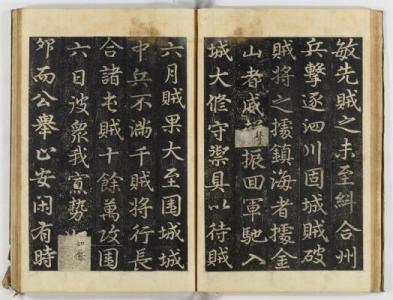 敏先賊之未至糾合州
兵擊逐泗川固城賊破
賊將之據鎮海者據金
山者威聲振回軍馳入
城大修守禦具以待賊
六月賊果大至圍城城
中兵不滿千賊將行長
合諸屯賊十餘萬攻圍
六日彼衆我寡勢如壓
卵而公舉止安閑有時